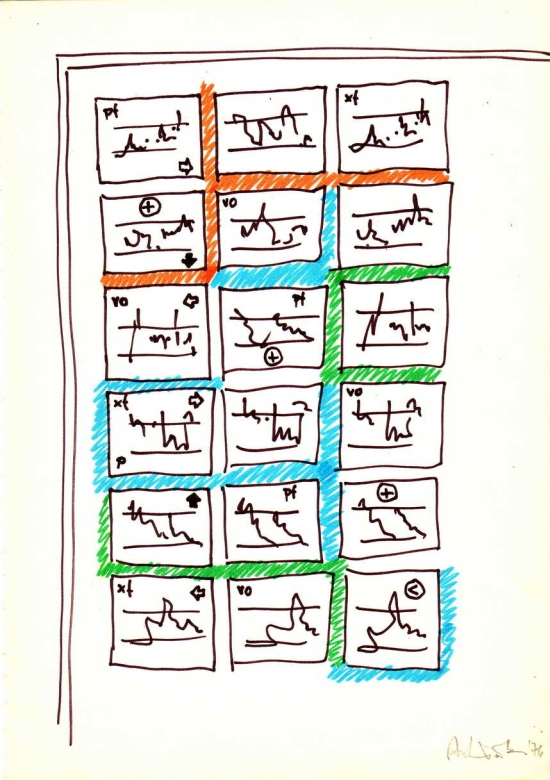 pf
xf
+
vo
vo
pf
+
xf
vo
p
pf
+
xf
vo
<
'76